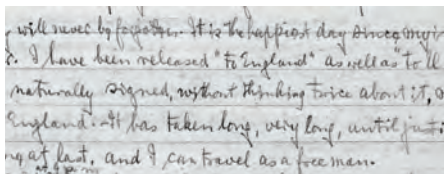 will never be forgotten. It is the happiest day since my
I have been released "to England" as well as "to
naturally signed, without thinking twice about it,
England. It has taken long, very long, until
at last, and I can travel as a free man.